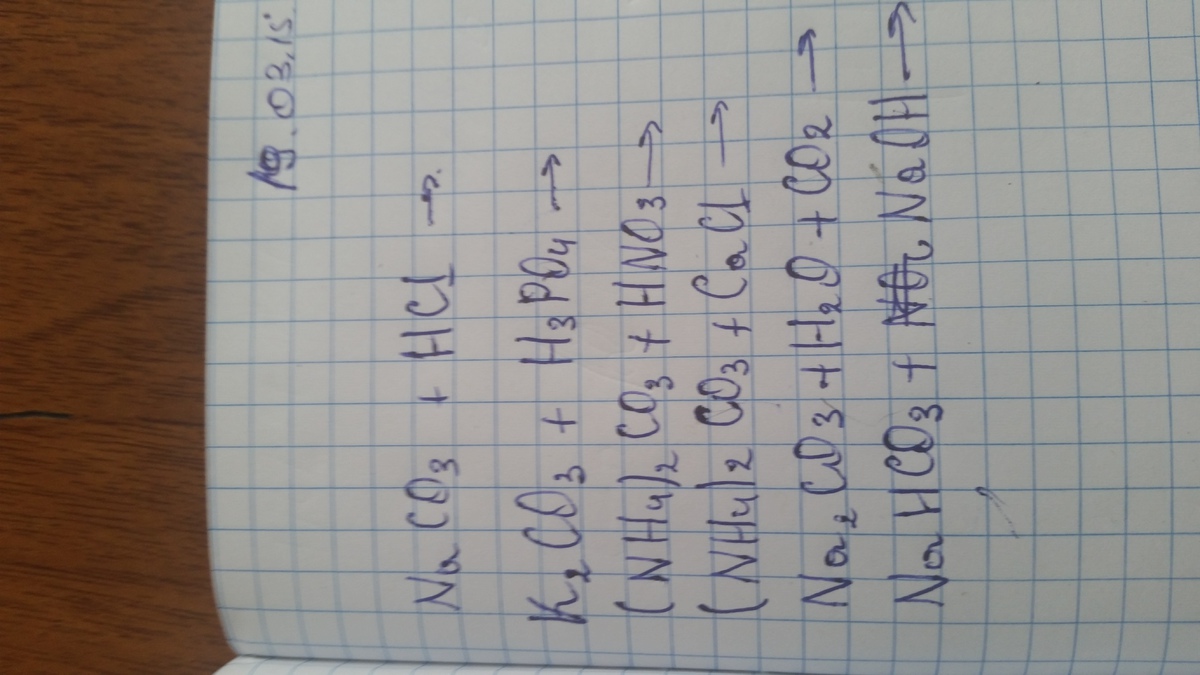 19.03.15
NaCO3 + HCl →
K2CO3 + H3PO4 →
(NH4)2 CO3 + HNO3 →
(NH4)2 CO3 + CaCl →
Na2CO3 + H2O + CO2 →
NaHCO3 + NaOH →